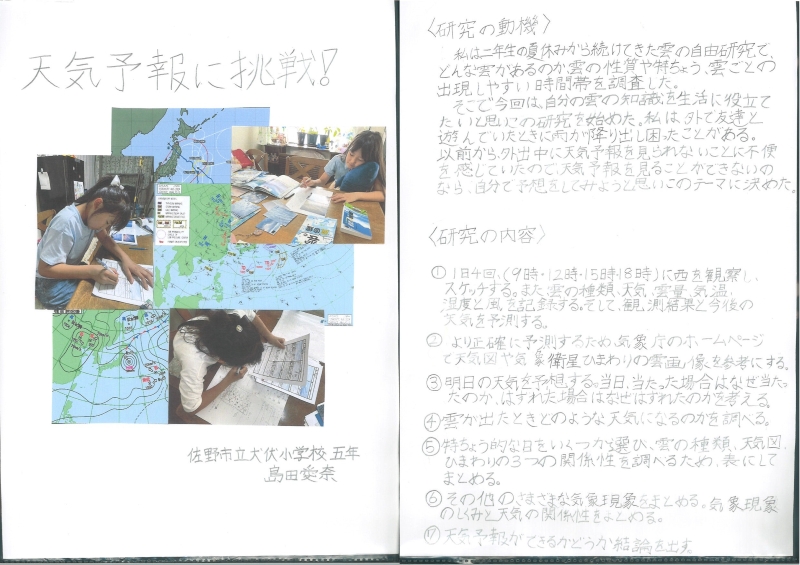 天気予報に挑戦!
佐野市立犬伏小学校 五年
島田愛奈
〈研究の動機〉
私は二年生の夏休みから続けてきた雲の自由研究で、
どんな雲があるのか雲の性質や特ちょう、雲ごとの
出現しやすい時間帯を調査した。
そこで今回は、自分の雲の知識を生活に役立て
たいと思いこの研究を始めた。私は、外で友達と
遊んでいたときに雨が降り出し困ったことがある。
以前から、外出中に天気予報を見られないことに不便
を感じていたので、天気予報を見ることができないの
なら、自分で予想をしてみようと思いこのテーマに決めた。
〈研究の内容〉
① 1日4回、(9時・12時・15時・18時)に西を観察し、
スケッチする。また雲の種類、天気、雲量、気温、
湿度と風を記録する。そして、観測結果と今後の
天気を予測する。
② より正確に予測するため、気象庁のホームページ
で天気図や気象衛星ひまわりの雲画像を参考にする。
③ 明日の天気を予想する。当日、当たった場合はなぜ当たっ
たのか、はずれた場合はなぜはずれたのかを考える。
④ 雲が出たときどのような天気になるのかを調べる。
⑤ 特ちょう的な日をいくつか選び、雲の種類、天気図、
ひまわりの3つの関係性を調べるため、表にして
まとめる。
⑥ その他のさまざまな気象現象をまとめる。気象現象
のしくみと天気の関係性をまとめる。
⑦ 天気予報ができるかどうか結論を出す。